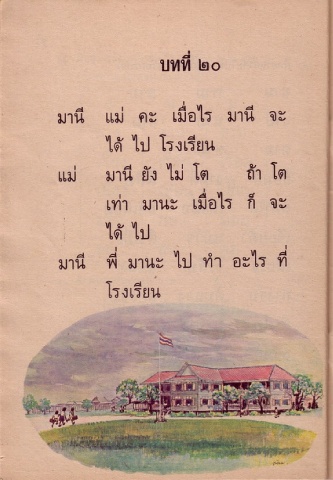 บทที่ ๒๐
มานี แม่ คะ เมื่อไร มานี จะ
ได้ ไป โรงเรียน
แม่ มานี ยัง ไม่ โต ถ้า โต
เท่า มานะ เมื่อไร ก็ จะ
ได้ ไป
มานี พี่ มานะ ไป ทำ อะไร ที่
โรงเรียน